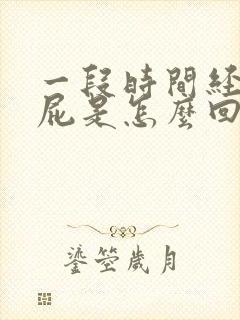 一段時間経
屁是怎麼回
鎏箜歲月